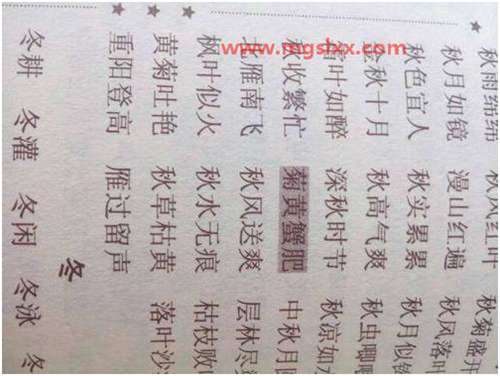 www.mgslxx.com
秋雨绵绵 秋风红叶 秋菊盛开
秋月如镜 漫山红遍 秋风落叶
秋色宜人 秋实累累 秋月似镜
金秋十月 秋高气爽 秋虫唧唧
霜叶如醉 深秋时节 秋凉如水
秋收繁忙 菊黄蟹肥 中秋月
北雁南飞 秋风送爽 层林尽
枫叶似火 秋水无痕 枯枝败
黄菊吐艳 秋草枯黄 落叶沙
重阳登高 雁过留声
冬
冬耕 冬灌 冬闲 冬泳 冬